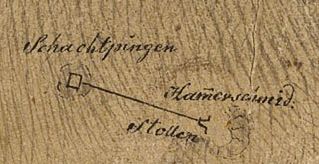 Schachtpingen
Ham̄erschmid.
Stollen